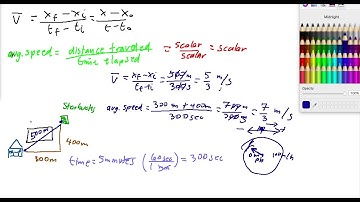 v̄ = (x_f - x_i)/(t_f - t_i) = (x - x_0)/(t - t_0)
avg. speed = distance traveled / time elapsed = scalar/scalar = scalar
v̄ = (x_f - x_i)/(t_f - t_i) = 500m/300s = 5/3 m/s
Starbucks avg. speed = (300m + 400m)/300sec = 700m/300s = 7/3 m/s
500m
400m
300m
time = 5 minutes (60 sec / 1 min) = 300 sec
Midnight